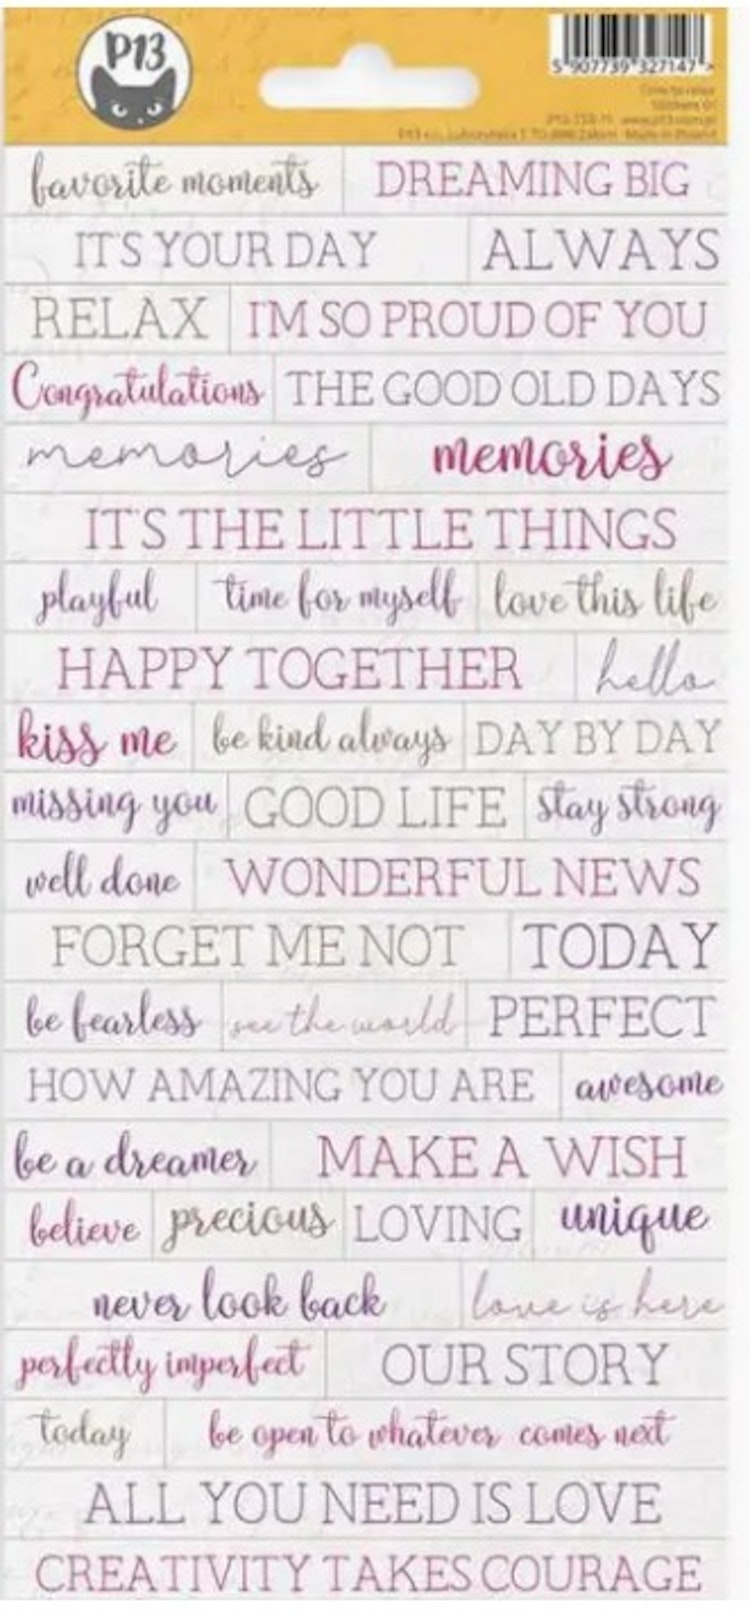 P13
5 907739 327147 >
Time to relax
Stickers 01
favorite moments DREAMING BIG
IT'S YOUR DAY ALWAYS
RELAX I'M SO PROUD OF YOU
Congratulations THE GOOD OLD DAYS
memories memories
IT'S THE LITTLE THINGS
playful time for myself love this life
HAPPY TOGETHER hello
kiss me be kind always DAY BY DAY
missing you GOOD LIFE stay strong
well done WONDERFUL NEWS
FORGET ME NOT TODAY
be fearless see the world PERFECT
HOW AMAZING YOU ARE awesome
be a dreamer MAKE A WISH
believe precious LOVING unique
never look back love is here
perfectly imperfect OUR STORY
today be open to whatever comes next
ALL YOU NEED IS LOVE
CREATIVITY TAKES COURAGE